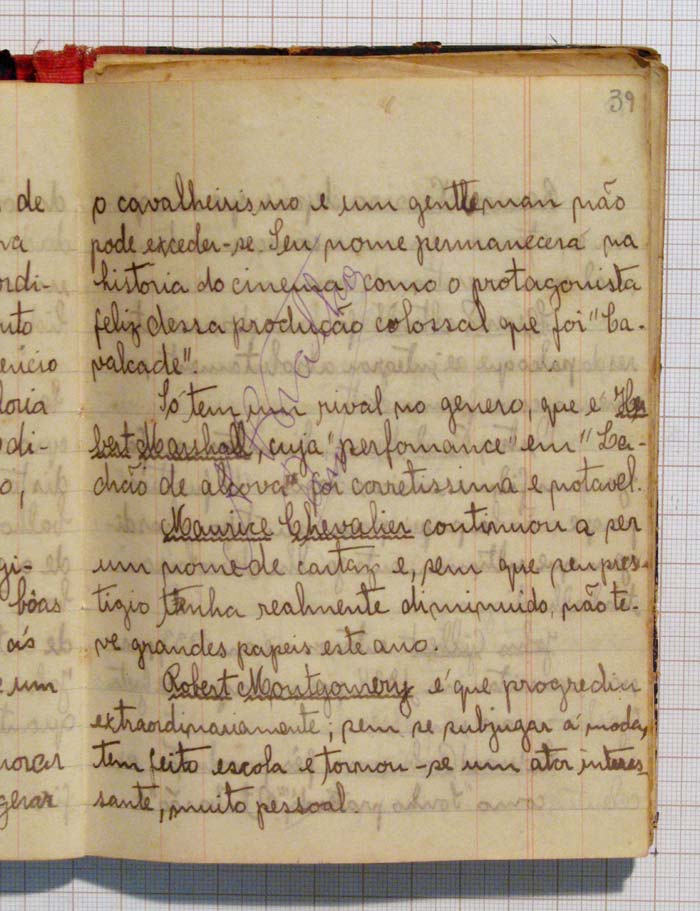 39
de
o cavalheirismo e um gentleman não
pode exceder-se. Seu nome permanecerá na
ordi-
historia do cinema, como o protagonista
feliz dessa produção colossal que foi "Ca-
valcade".
Só tem um rival no genero, que é Her
di-
bert Marshall, cuja "perfomance" em "La-
chão de alcova" foi corretissima e notavel.
Maurice Chevalier continuou a ser
gi-
um nome de cartaz e, sem que seu pres-
bôas
tigio tenha realmente diminuido, não te-
ve grandes papeis este ano.
e um
Robert Montgomery é que progrediu
extraordinariamente; sem se subjugar á moda,
tem feito escola e tornou-se um ator interes-
gerar
sante, muito pessoal.